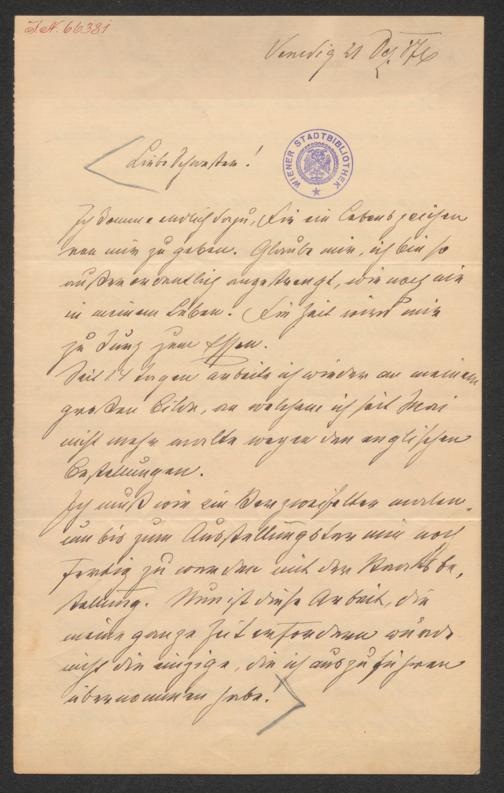 J.N. 66381
Venedig 21 Dez. 87
Liebe Schwester!
WIENER STADTBIBLIOTHEK
Ich komme endlich dazu, Dir ein Lebenszeichen
von mir zu geben. Glaube mir, ich bin so
außerordentlich angestrengt, wie noch nie
in meinem Leben. Die Zeit wird mir
zu kurz zum Essen.
Seit 14 Tagen arbeite ich wieder an meinem
großen Bilde, an welchem ich seit Mai
nicht mehr malte wegen den englischen
Bestellungen.
Ich muß wie ein Verzweifelter malen,
um bis zum Ausstellungstermin noch
fertig zu werden mit der Staatsbe-
stellung. Nun ist diese Arbeit, die
meine ganze Zeit erfordern würde
nicht die einzige, die ich auszuführen
übernommen habe.